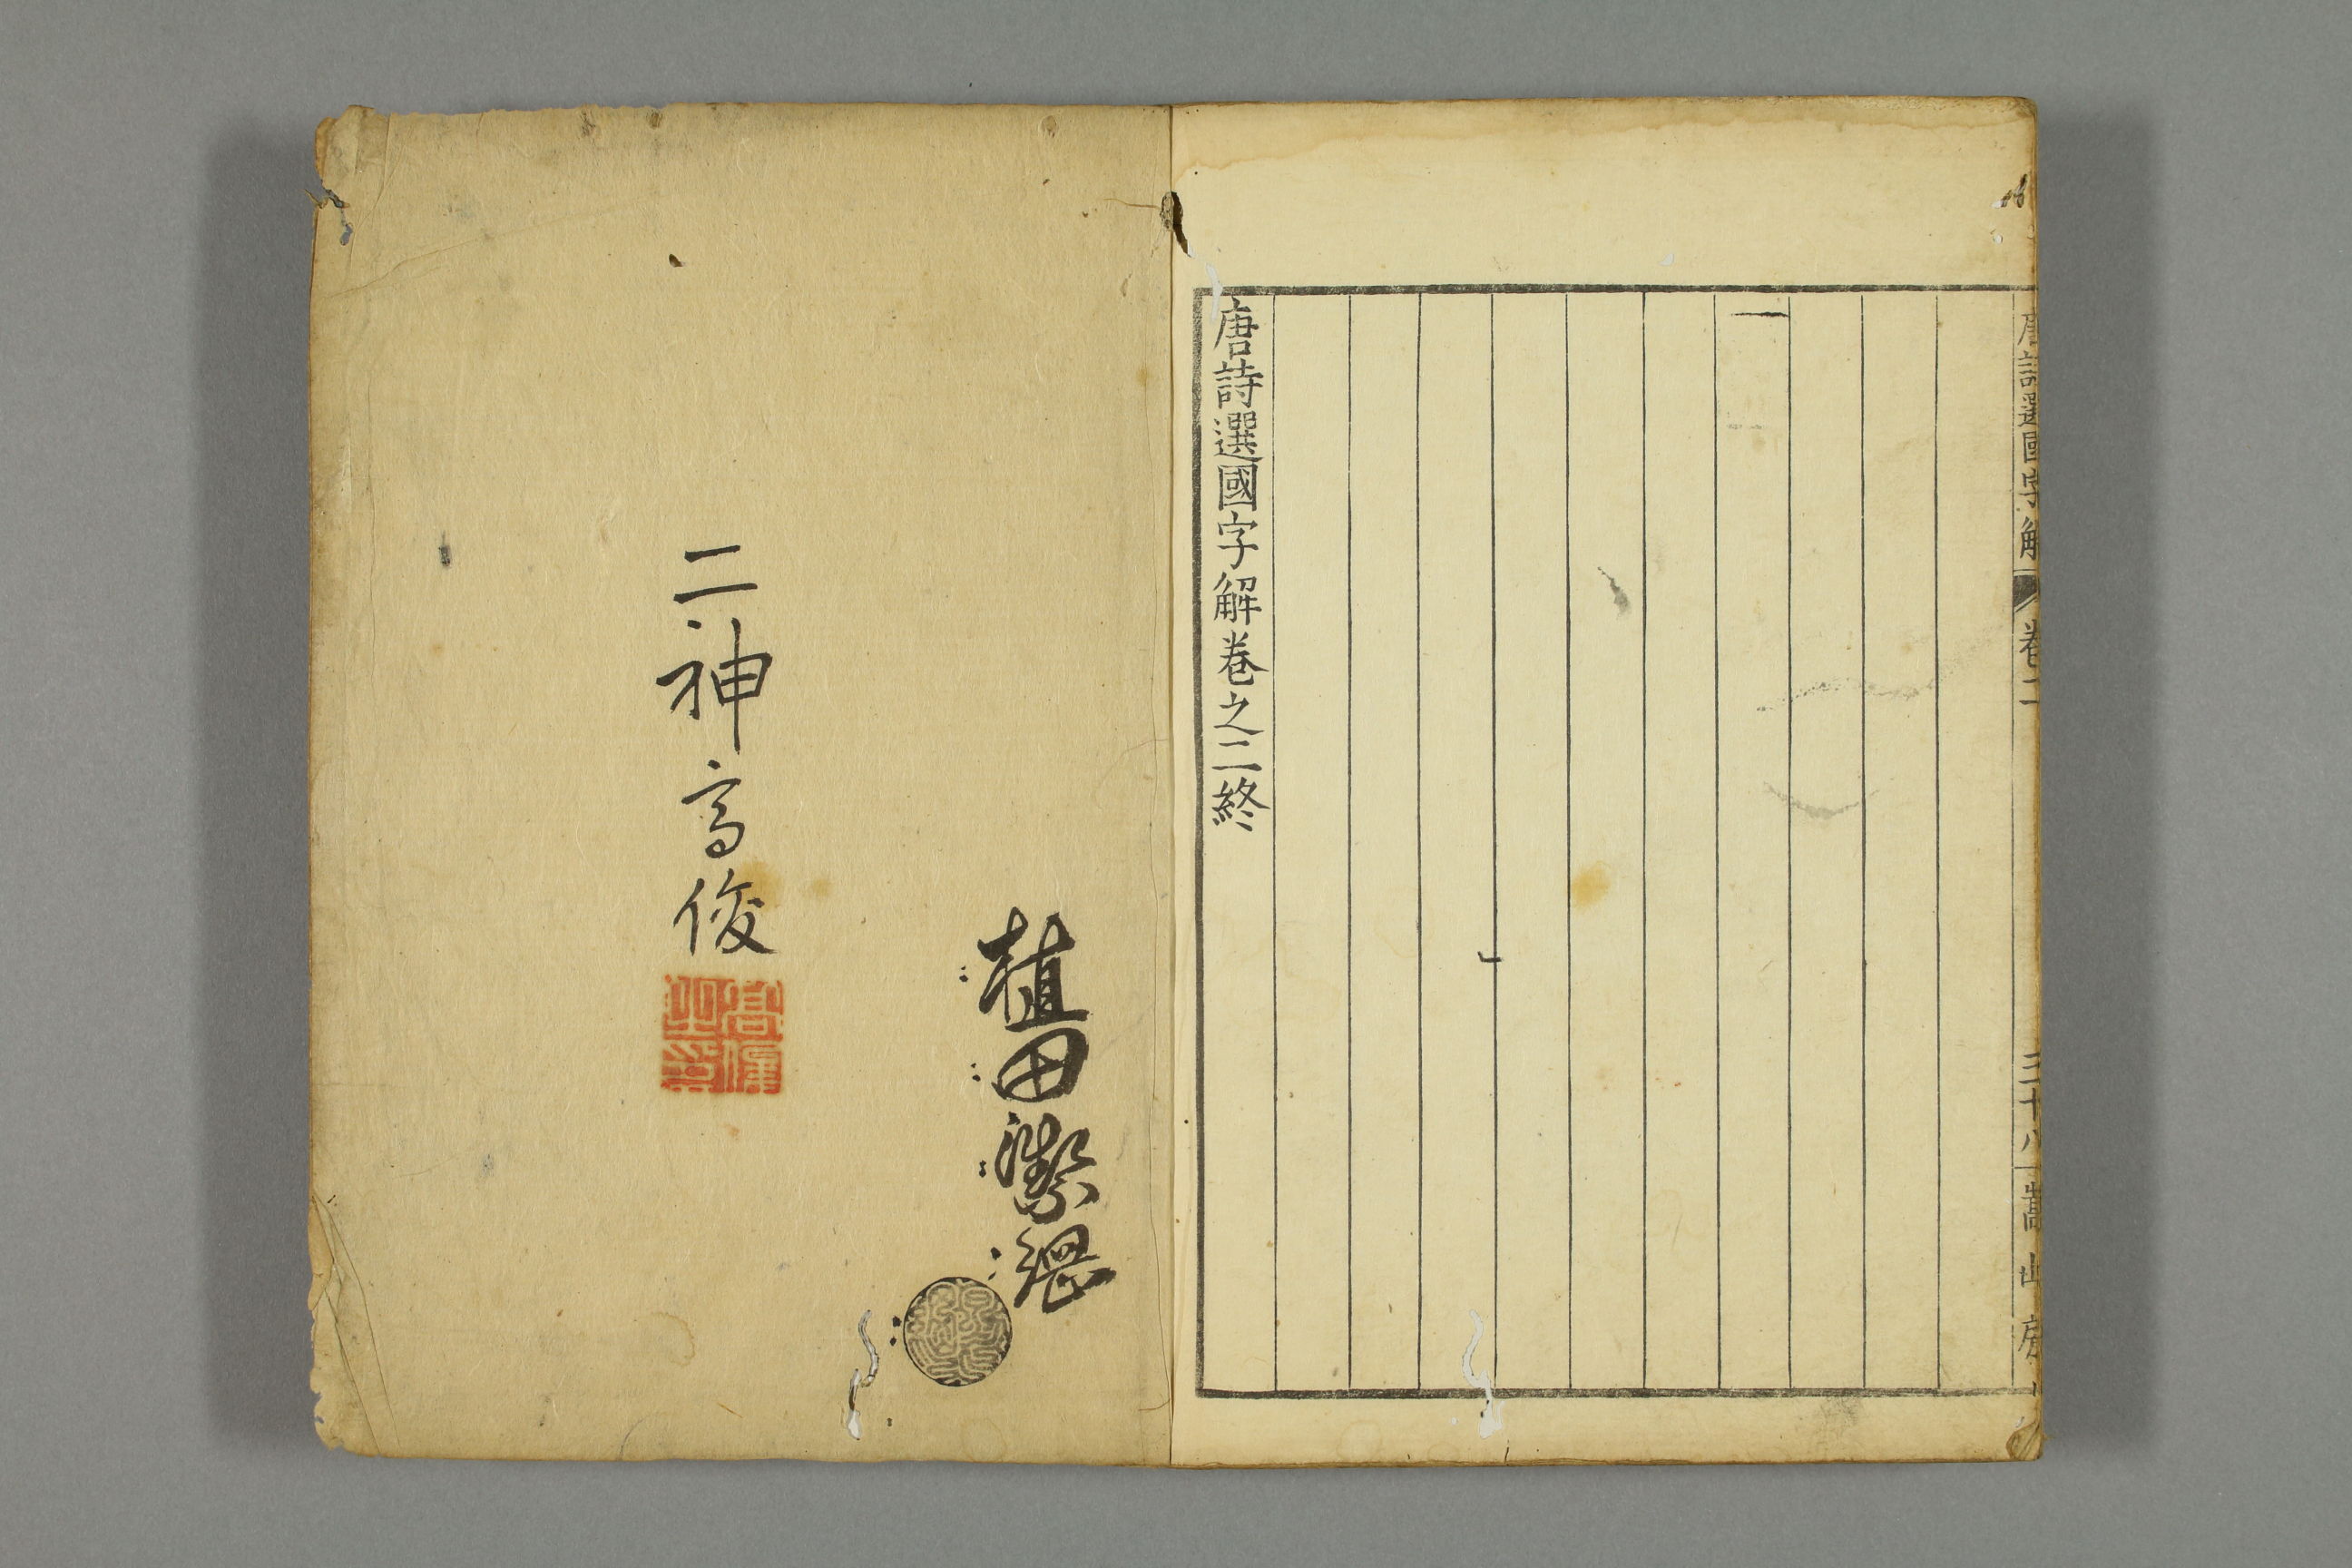 唐詩選國字解
卷二
三十八
嵩山房
唐詩選國字解卷之二終
植田
二神高俊